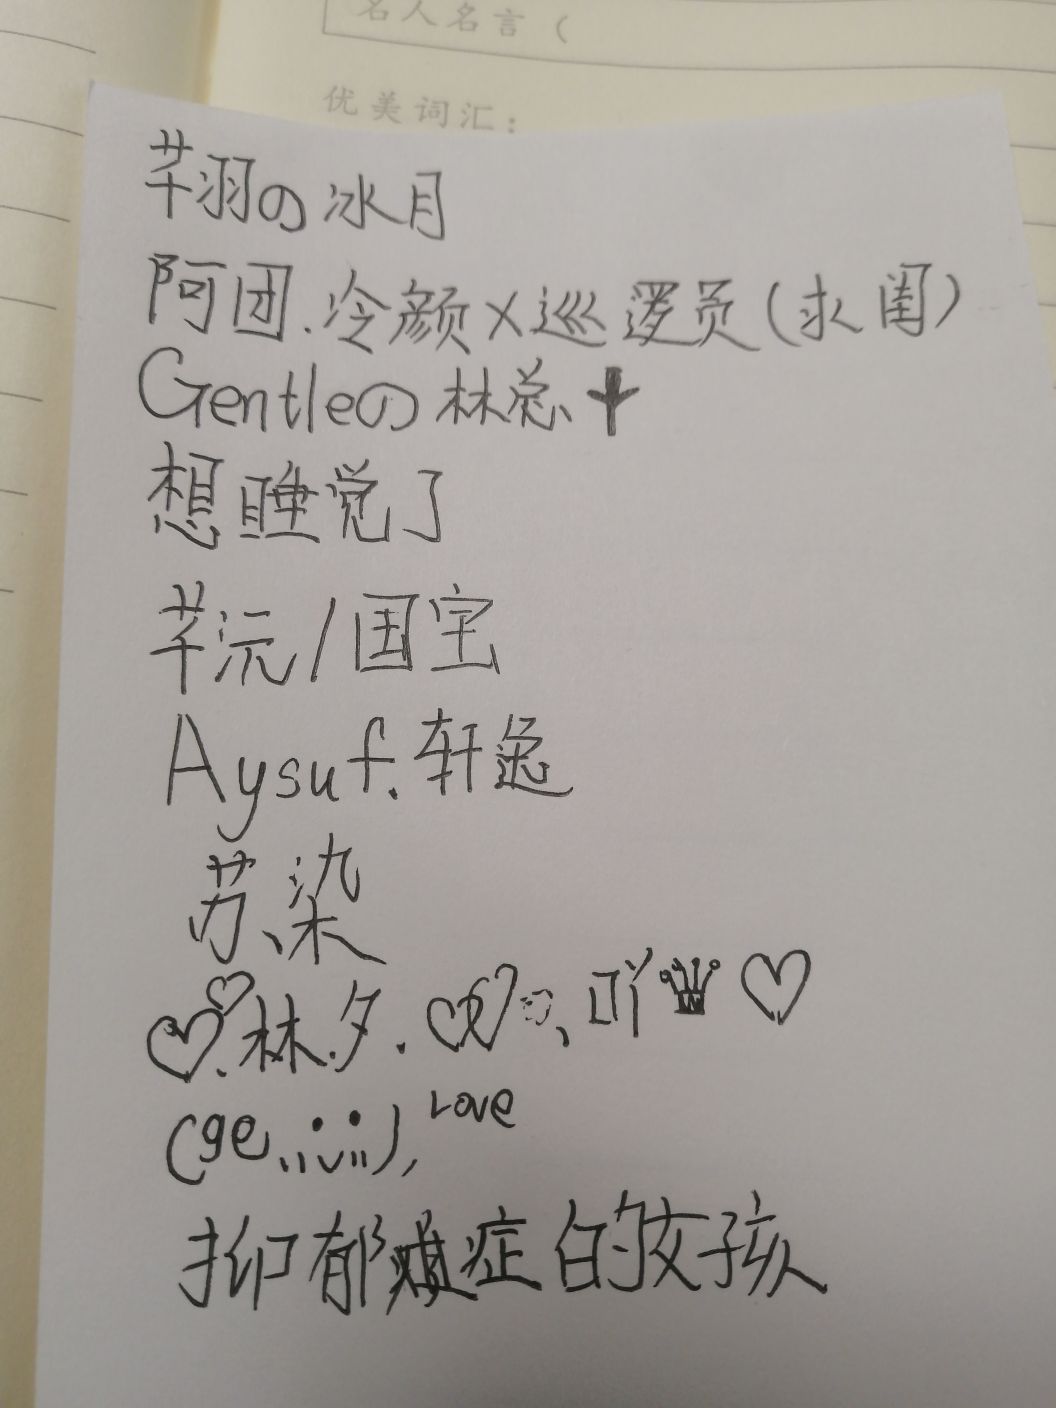 名人名言（
优美词汇：
芊羽の冰月
阿团.冷颜×巡逻员(求闺)
Gentleの林总
想睡觉了
芊沅/国宝
Aysuf.轩逸
苏、染
♡♡.林.夕.♡、吖♡
(ge、
Love
抑郁症的女孩